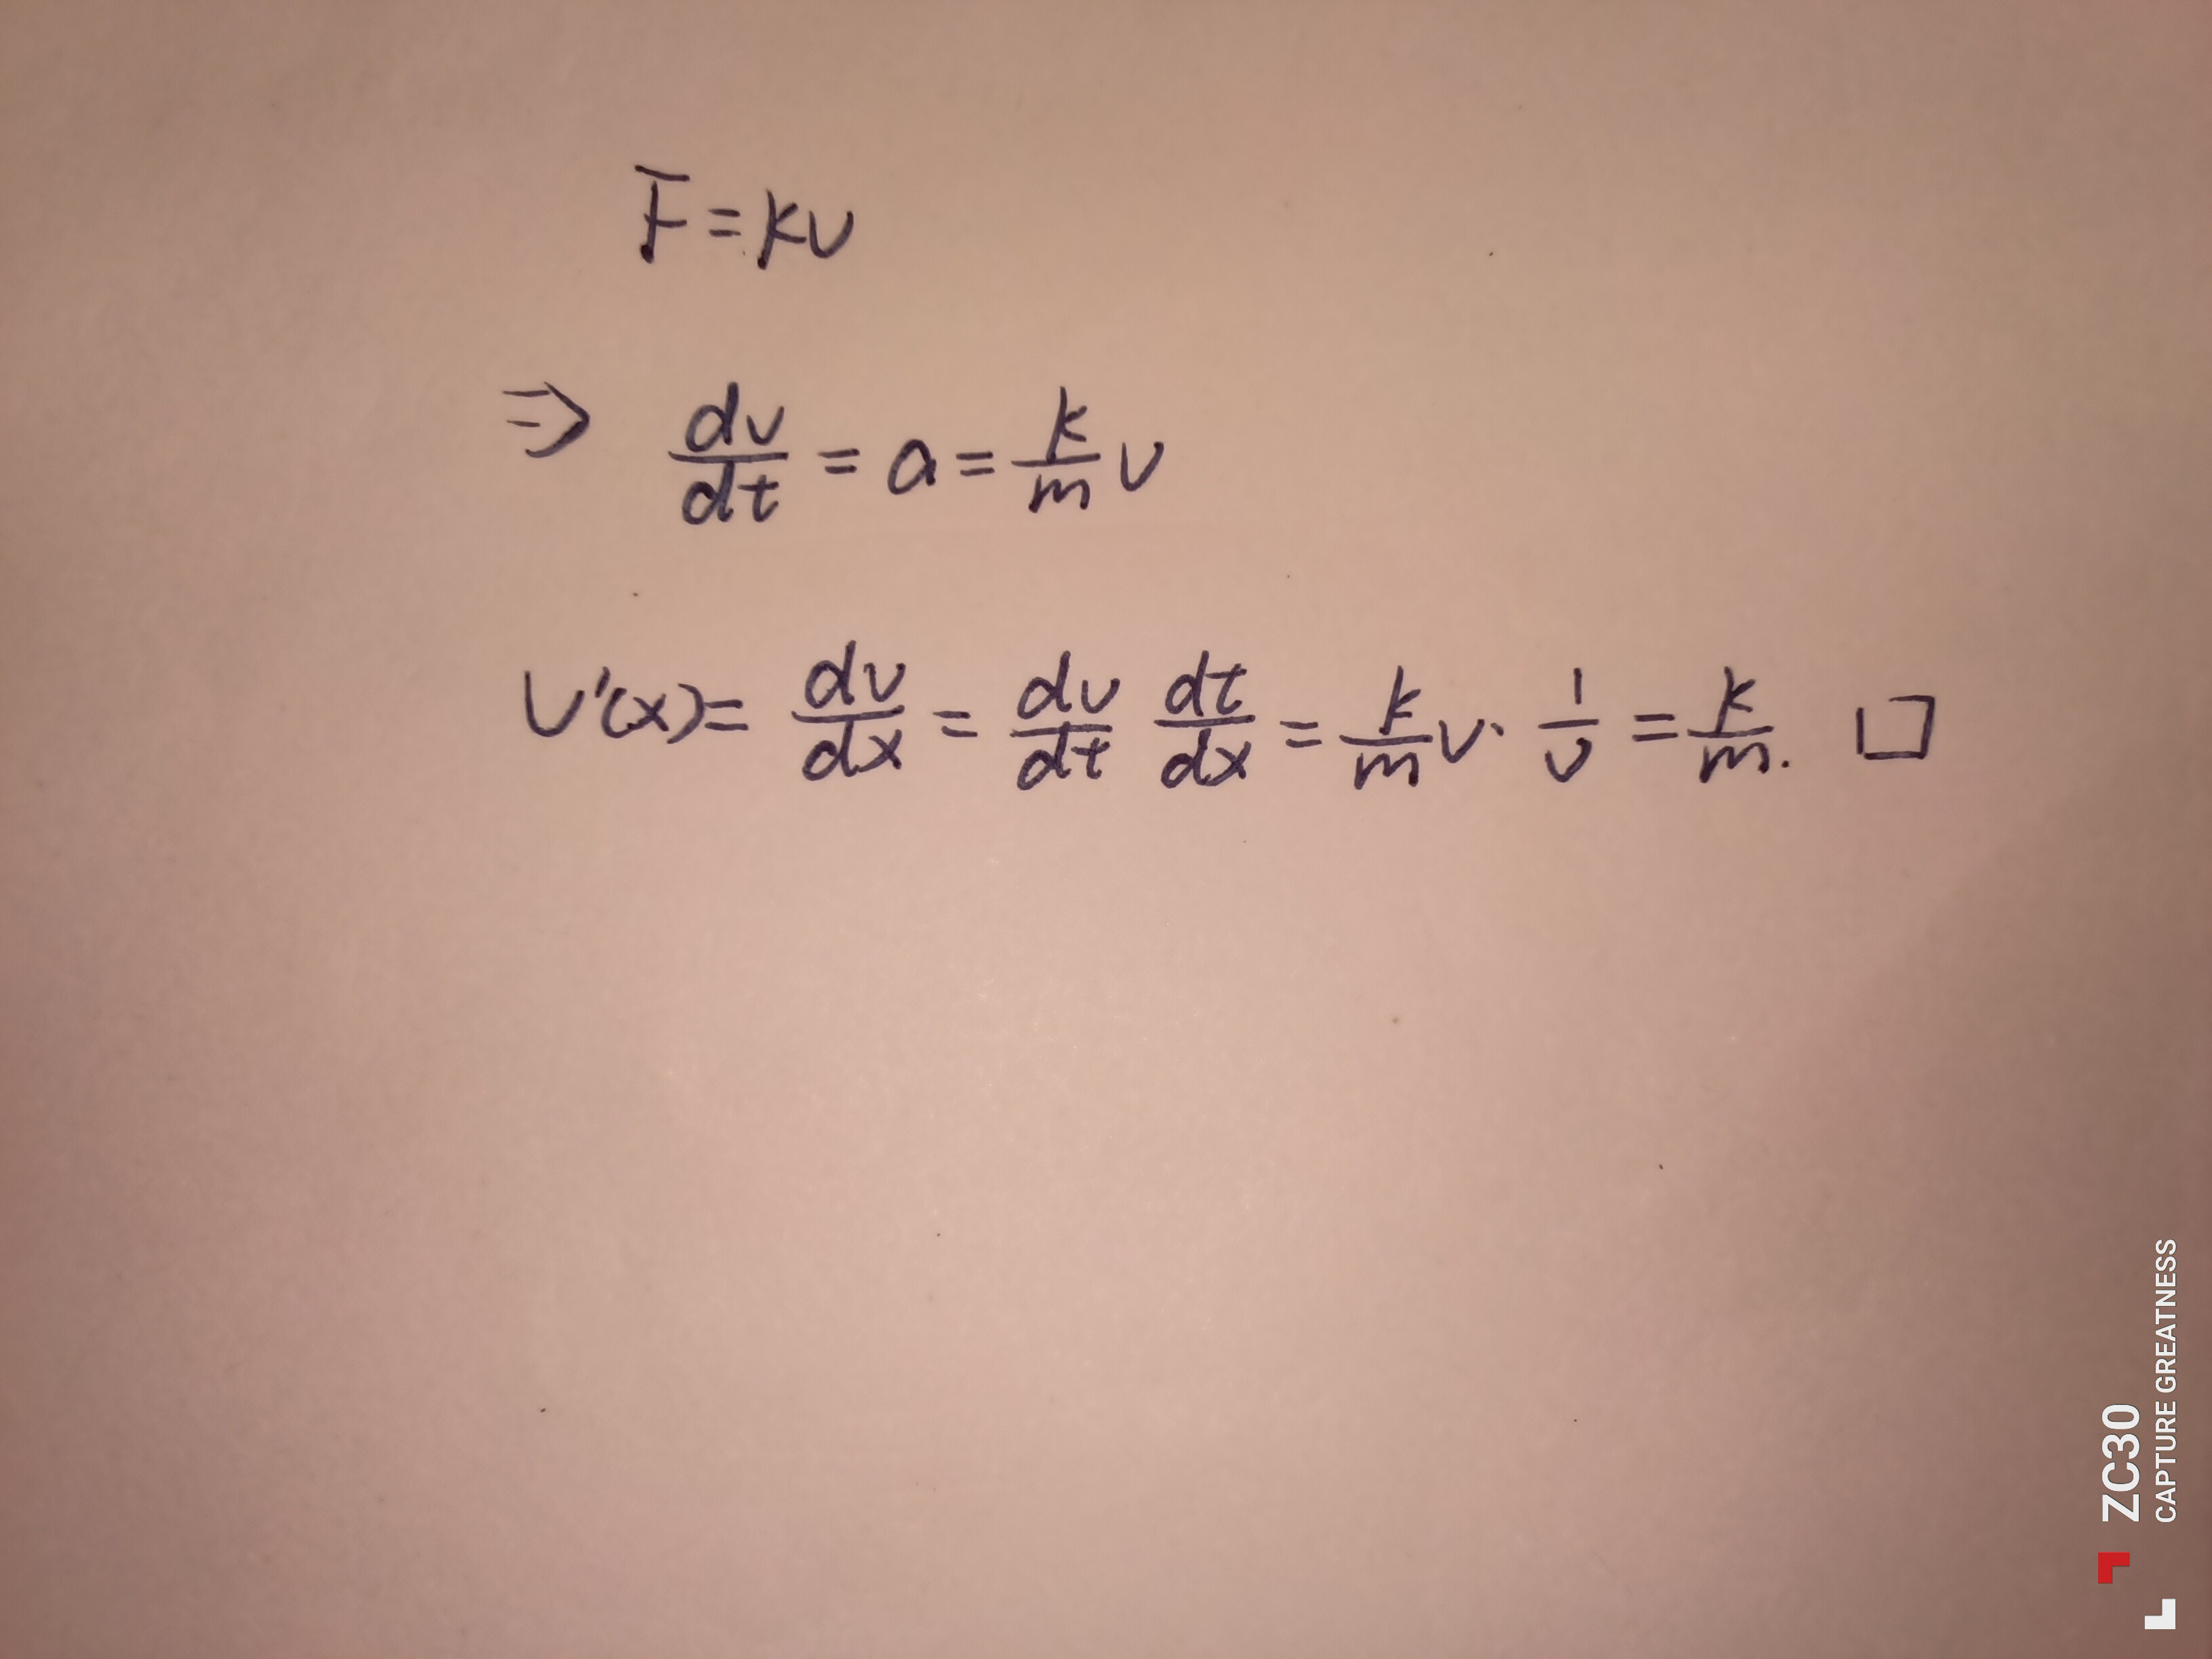 F = kv
⇒ dv/dt = a = k/m v
v'(x) = dv/dx = dv/dt dt/dx = k/m v · 1/v = k/m. □
ZC30
CAPTURE GREATNESS